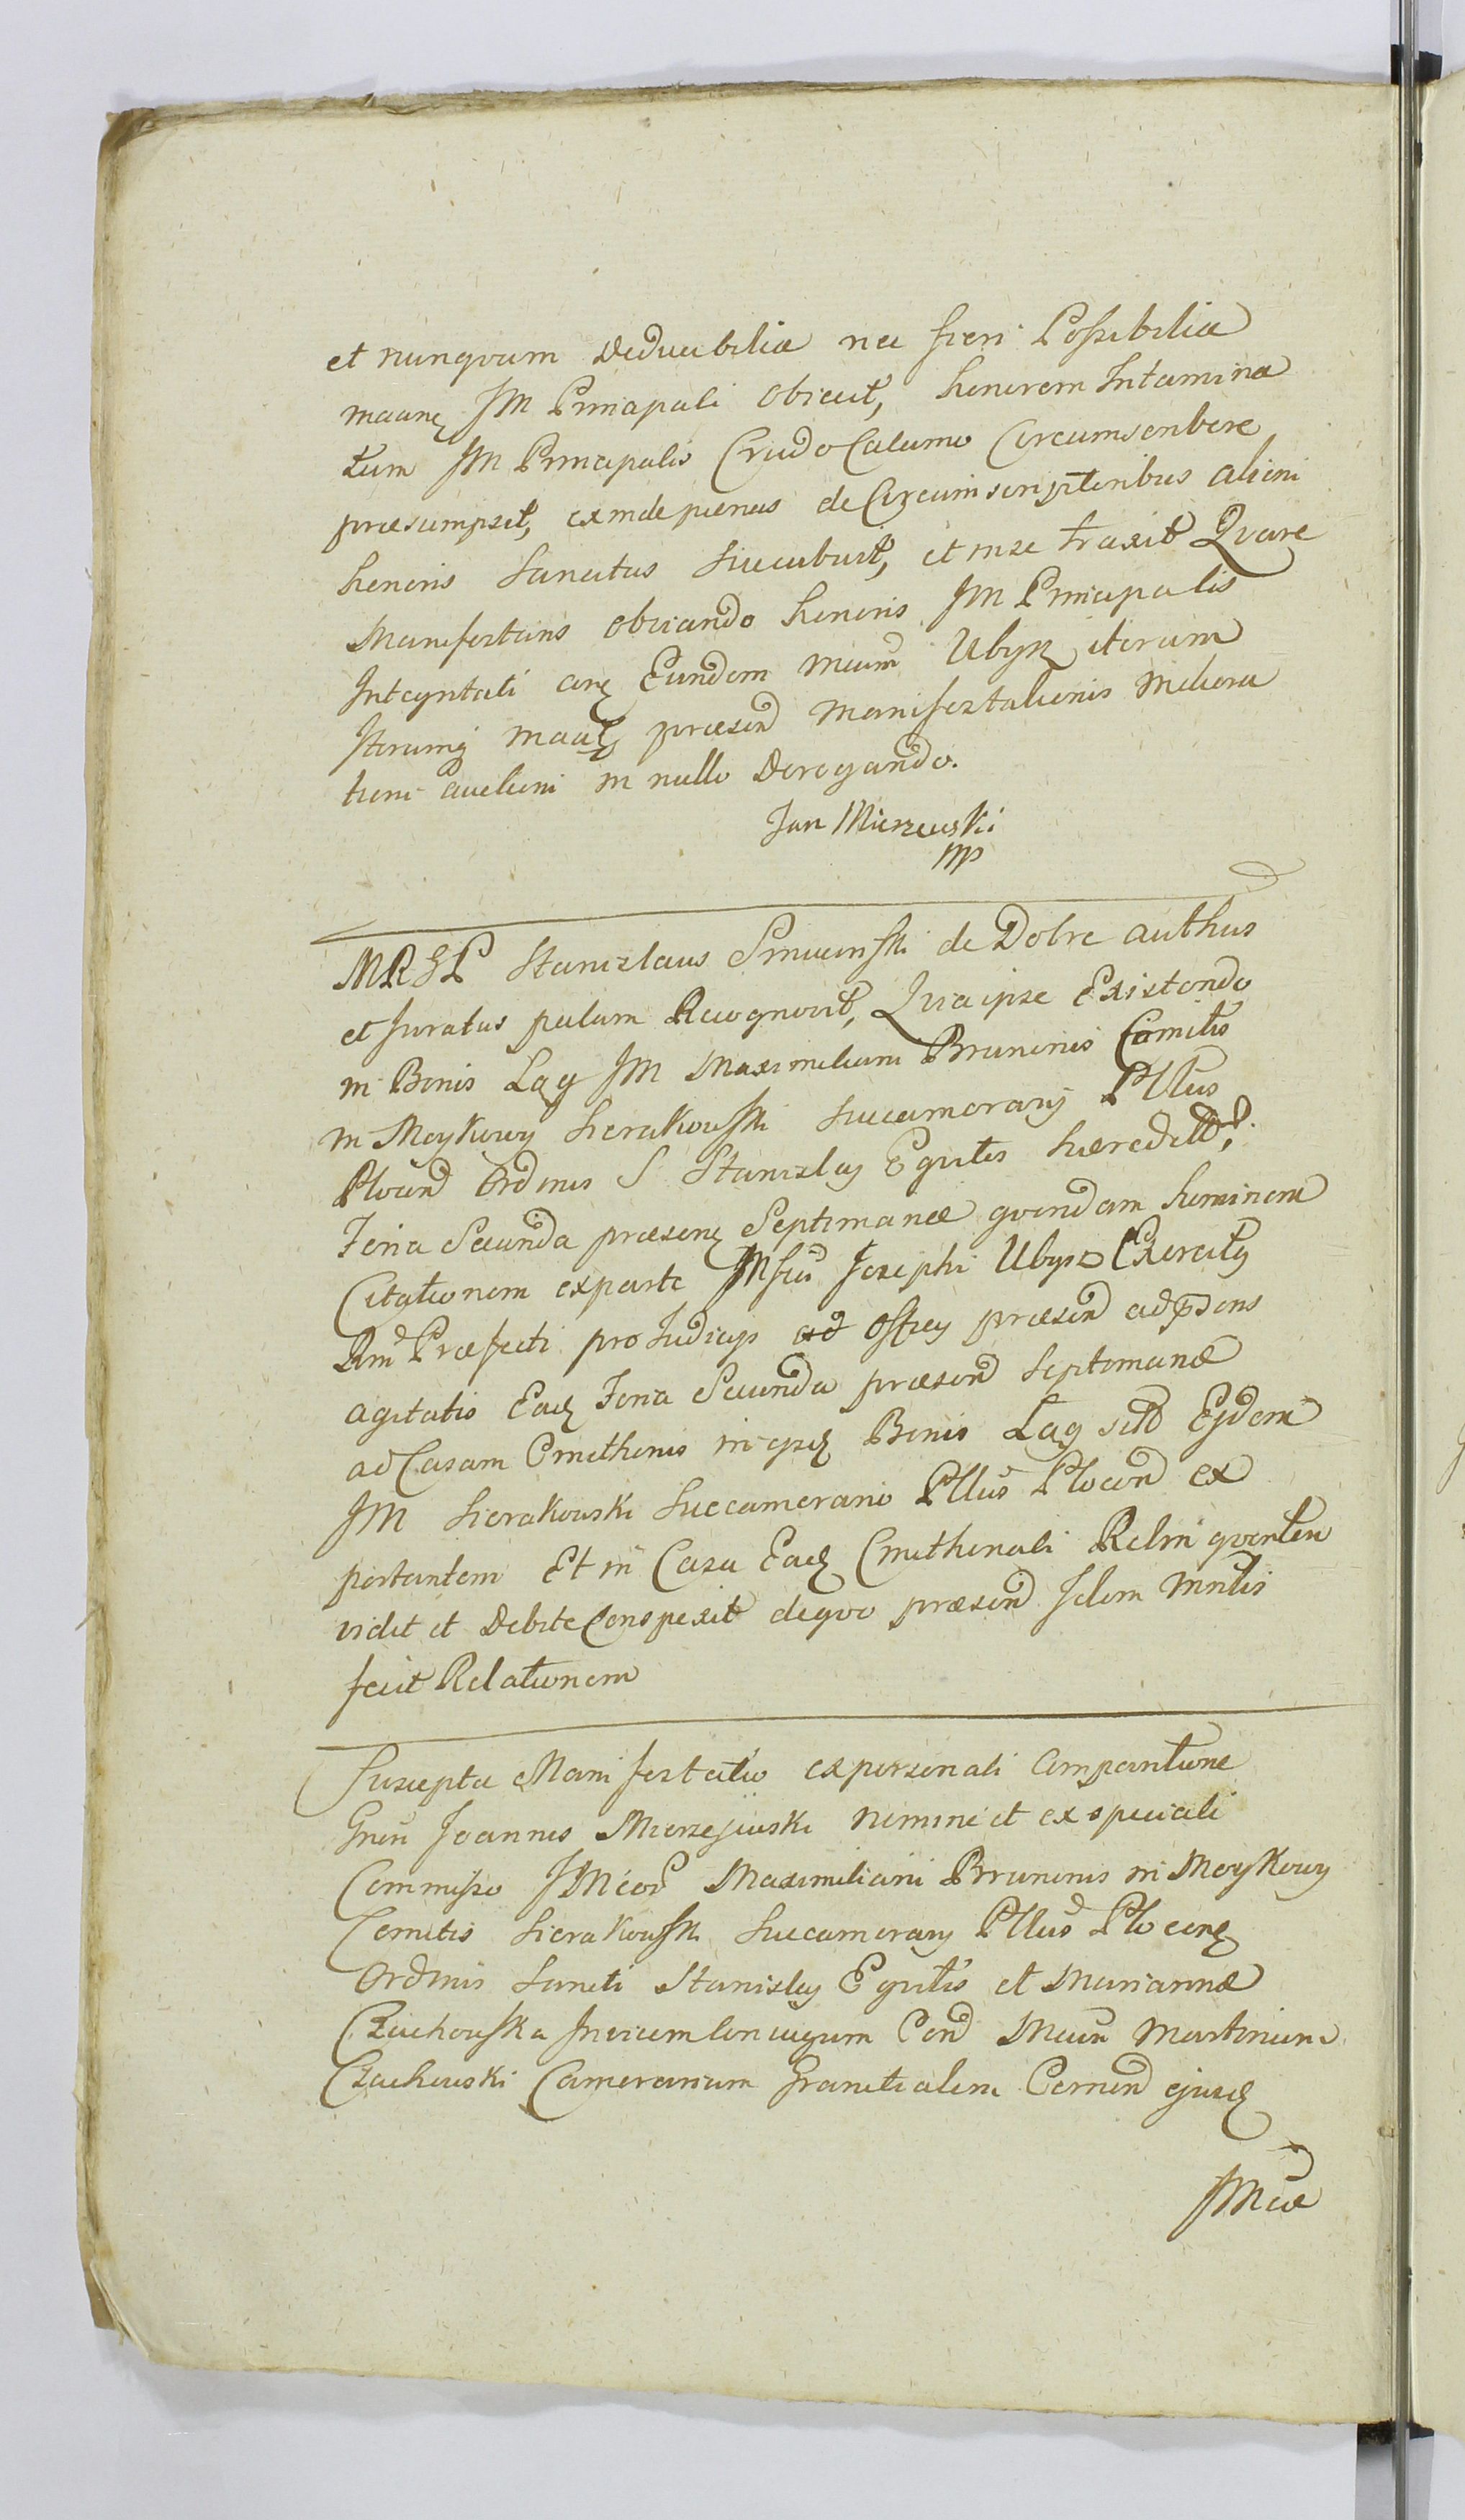 et nunqvam Deducibilia nec fieri Possibilia
JM Principali obiecit, honorem Intamina
tum JM Principalis Crudo Calamo Circumscribere
præsumpsit, exinde pænas de Circumscriptoribus alieni
honoris sancitas succubuit, et in se traxit Qvare
Manifestans obviando honoris JM Principalis
Integritati Eundem Ubysz iterum
Iterumq præsen manifestationis meliora
tioni auctioni in nullo Derogando.
Jan Mierzeuski
mp
MRGL Stanislaus de Dobre authus
et Juratus palam Recognovit, Qvia ipse Existendo
in Bonis Łag JM Maximiliani Brunonis Comitis
in Moykowy Sierakowski Succamerarij Pllus
Plocen Ordinis S Stanislaj Eqvitis
Feria Secunda præsen Septimanæ qvendam hominem
Citationem ex parte Josephi Ubysz Exercitq
Præfecti pro Judicijs ad præsen
agitatis Ead Feria Secunda præsen Septimanæ
ad Casam Cmethonis in ipsis Bonis Łag Ejdem
JM Sierakowski Succamerario Pllus Plocen ex
portantem Et in Casa Ead Cmethonali Relinqventem
vidit et Debite Conspexit de qvo præsen Idem
fecit Relationem
Suscepta Manifestatio ex personali Comparitione
Joannis Mierzejewski nomine et ex speciali
Commisso Maximiliani Brunonis in Moykowy
Comitis Sierakowski Succamerarij Pllus Plocen
Ordinis Sancti Stanislaj Eqvitis et Mariannæ
Czachowska Invicem Coniugum Con Martinum
Czachowski Camerarium Granitialem ejusd